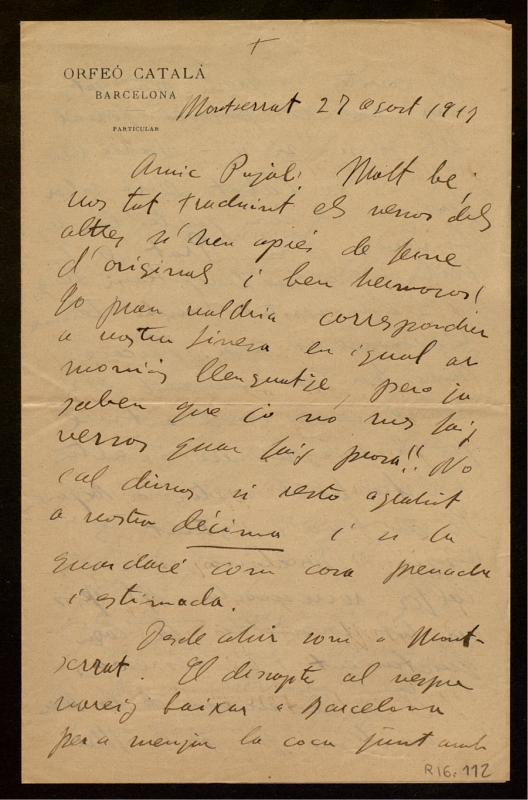 ORFEÓ CATALÁ
BARCELONA
PARTICULAR
Montserrat 27 agost 1911
Amic Pujol: Molt bé,
vos tot traduint els versos dels
altres n'heu aprés de ferne
d'originals i ben hermosos!
Jo prou valdria correspondre
a vostra finesa en igual ar
moniós llenguatje, pero ja
saben que jo no mes faig
versos quan faig prosa!! No
cal dirvos si resto agrahit
a vostra décima i si la
guardaré com cosa preuada
i estimada.
Desde ahir som a Mont-
serrat. El dissapte al vespre
vareig baixar a Barcelona
per a menjar la coca junt amb
R16.112